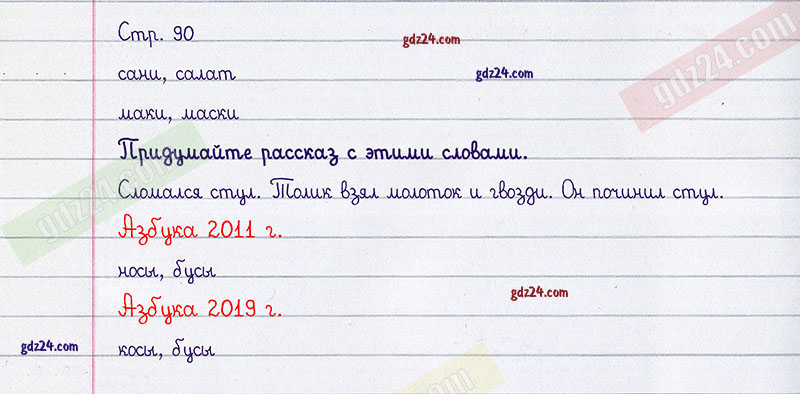 Стр. 90
gdz24.com
gdz24.com
сани, салат
gdz24.com
маки, маски
Придумайте рассказ с этими словами.
Сломался стул. Толик взял молоток и гвозди. Он починил стул.
gdz24.com
Азбука 2011 г.
носы, бусы
gdz24.com
Азбука 2019 г.
gdz24.com
косы, бусы
gdz24.com